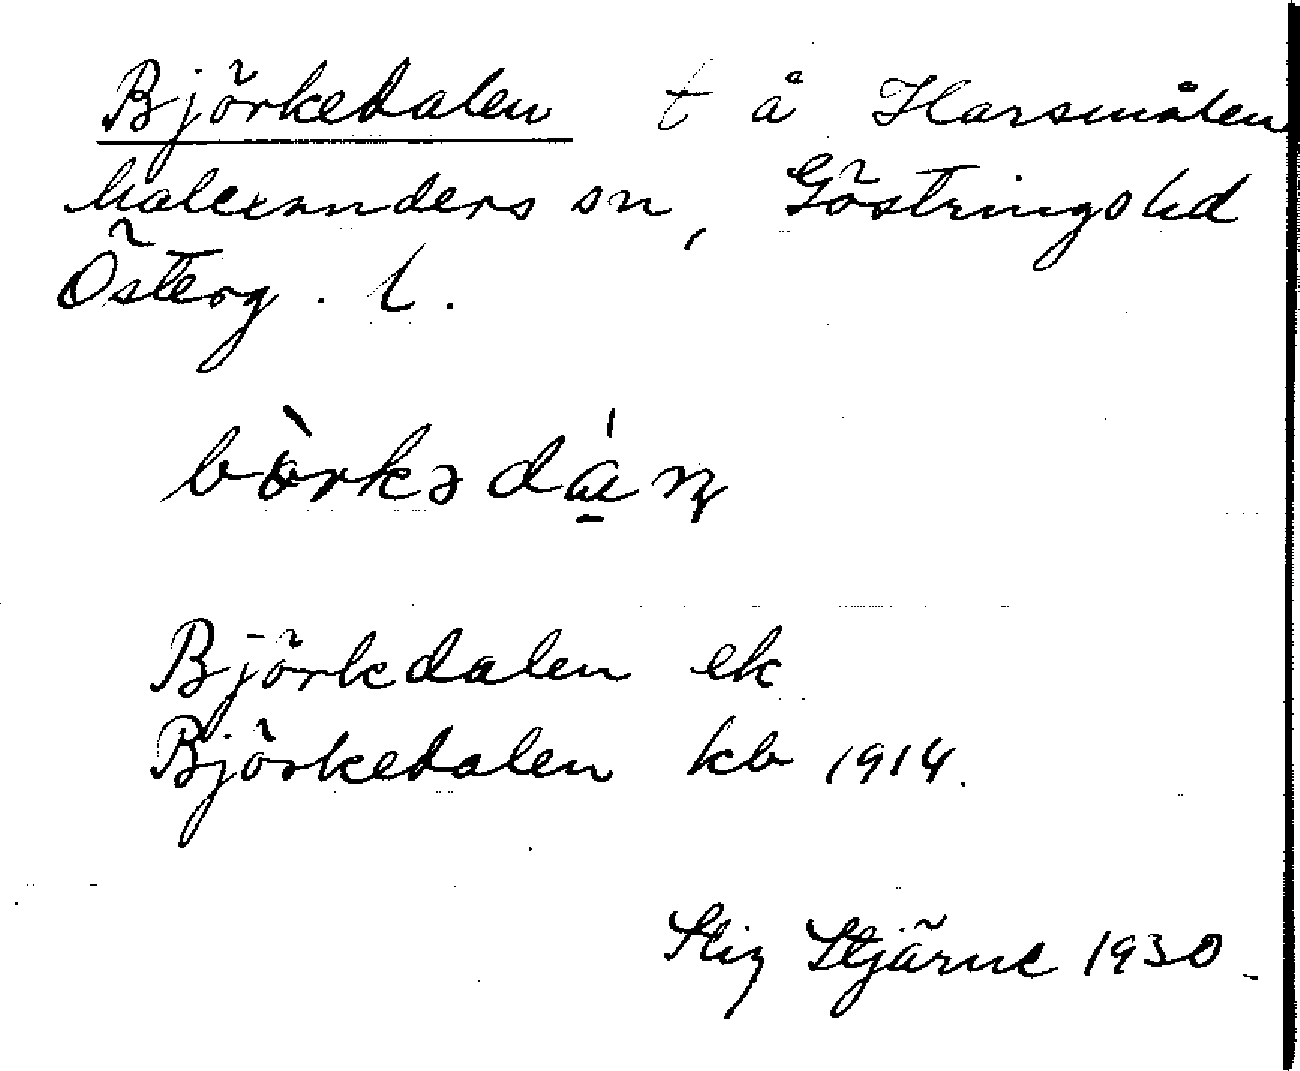 Björkedalen t å Harsmålen
Malexanders sn, Göstrings hd
Österg. l.
Björkdalen ek
Björkedalen kb 1914.
Stig Stjärne 1930